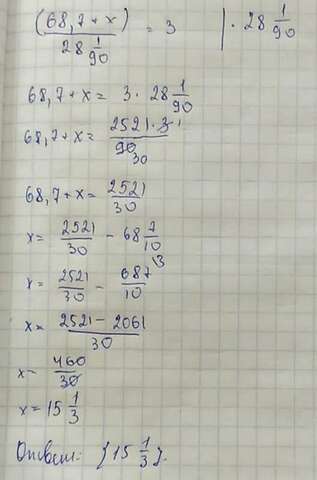 (68,7 + x) / 28 1/90 = 3 | · 28 1/90
68,7 + x = 3 · 28 1/90
68,7 + x = 2521 · 3 1 / 90 30
68,7 + x = 2521/30
x = 2521/30 - 68 7/10
x = 2521/30 - 687/10 \3
x = 2521 - 2061 / 30
x = 460/30
x = 15 1/3
Ответ: {15 1/3}.